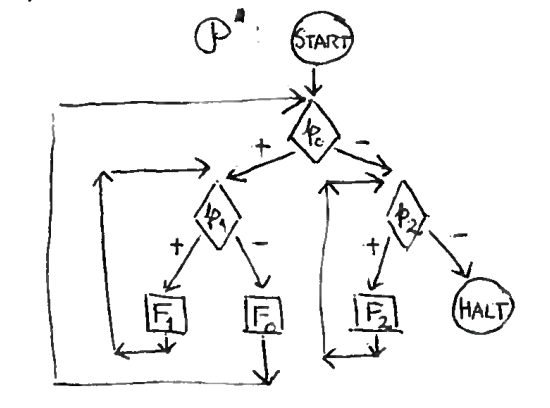 P*: START
p₀
+ −
p₁ p₂
+ − + −
F₁ F₀ F₂ HALT